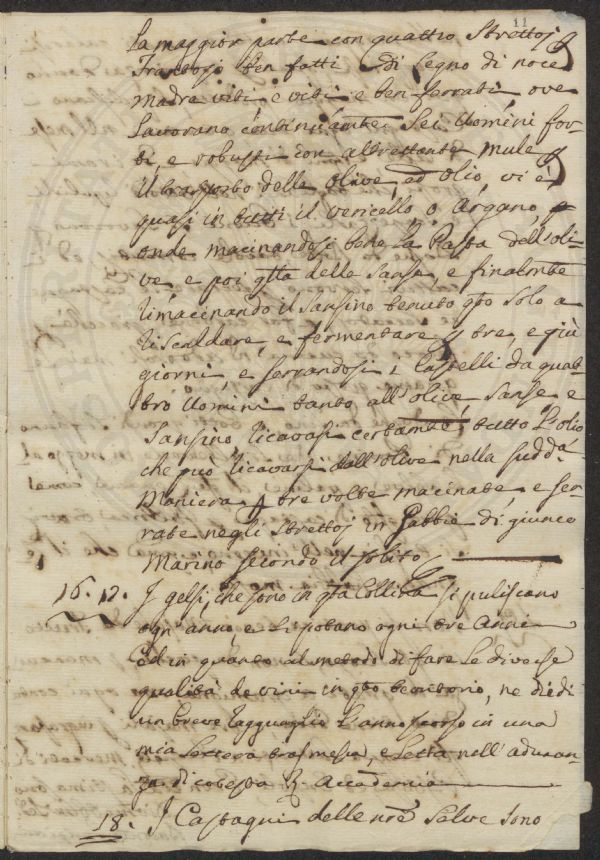 11
La maggior parte con quattro Strettoj
Frantoj ben fatti di legno di noce
madre viti e viti e ben ferrati ove
lavorano continuamte Sei Uomini for-
ti, e robusti con altrettante mule
il trasporto delle olive, ed olio, vi è
quasi in tutti il vericello, o Argano,
onde macinandosi bene la Pasta dell'oli-
ve e poi qtta delle Sanse, e finalmte
rimacinando il Sansino tenuto qto solo a
riscaldare, e fermentare p tre, e più
giorni, e serrandosi i Castelli da quat-
tro Uomini tanto all'olive Sanse e
Sansino ricavasi certamte tutto l'olio
che può ricavarsi dall'olive nella sudda
Maniera p tre volte macinate, e ser-
rate negli Strettoj in Gabbie di giunco
Marino secondo il solito
16. 17. I gelsi, che sono in qta Collina si puliscano
ogn'anno e si potano ogni tre Anni
Ed in quanto al metodo di fare le diverse
qualità de vini in qto territorio, ne diedi
un breve ragguaglio l'anno scorso in una
mia Lettera trasmessa, e Letta nell'adunan-
za di cotesta R. Accademia
18. I Castagni delle nre Selve sono